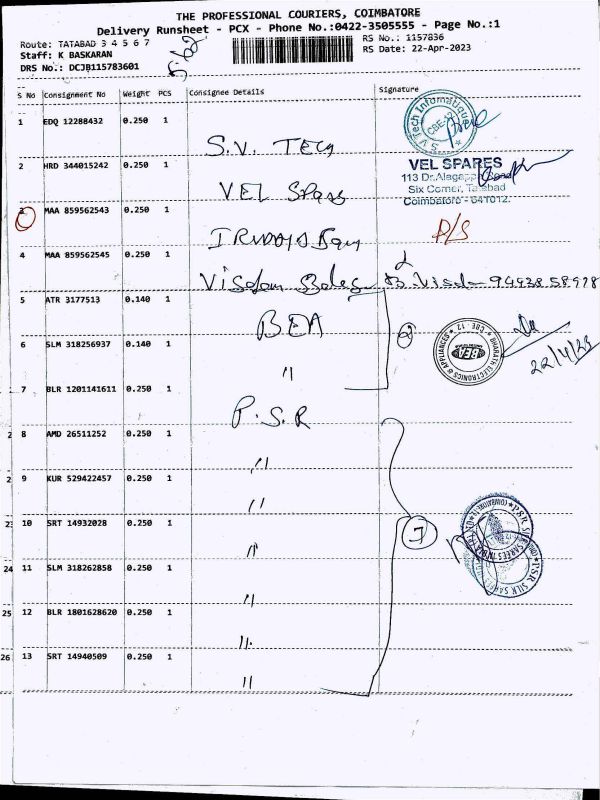 THE PROFESSIONAL COURIERS, COIMBATORE
Delivery Runsheet - PCX - Phone No.:0422-3505555 - Page No.:1
Route: TATABAD 3 4 5 6 7
RS No.: 1157836
Staff: K BASKARAN
RS Date: 22-Apr-2023
DRS No.: DCJB115783601
S No Consignment No Weight PCS Consignee Details Signature
1 EDQ 12288432 0.250 1 S.V. TECH
S V Tech Infomatique CBE-12
2 HRD 344015242 0.250 1 VEL Spares
VEL SPARES
113 Dr.Alagappa Road
Six Corner, Tatabad
Coimbatore - 641012.
3 MAA 859562543 0.250 1
P/S
4 MAA 859562545 0.250 1
5 ATR 3177513 0.140 1 BEA
2
BHARATH ELECTRONICS & APPLIANCES CBE - 12
BEA
22/4/23
6 SLM 318256937 0.140 1 "
7 BLR 1201141611 0.250 1 P.S.R
2 8 AMD 26511252 0.250 1 "
2 9 KUR 529422457 0.250 1 "
23 10 SRT 14932028 0.250 1 "
7
PSR SILK SAREES
24 11 SLM 318262858 0.250 1 "
PSR SILK SAREES
25 12 BLR 1801628620 0.250 1 "
26 13 SRT 14940509 0.250 1 "